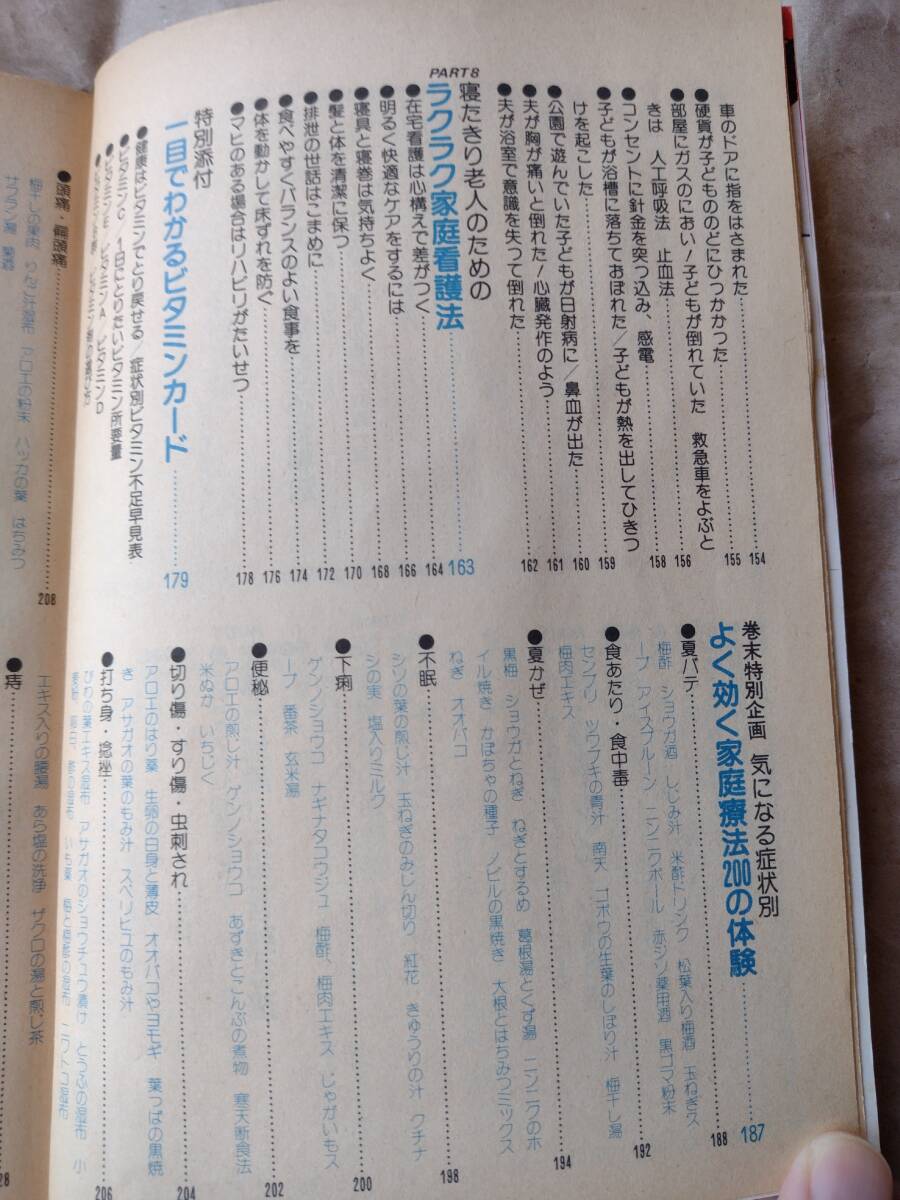 車のドアに指をはさまれた……154
硬貨が子どものどにひっかかった……155
部屋にガスのにおい!子どもが倒れていた 救急車をよぶと
きは 人工呼吸法 止血法……156
コンセントに針金を突っ込み、感電……158
子どもが浴槽に落ちておぼれた/子どもが熱を出してひきつ
けを起こした……159
●公園で遊んでいた子どもが日射病に/鼻血が出た……160
●夫が胸が痛いと倒れた!心臓発作のよう……161
●夫が浴室で意識を失って倒れた……162
PART8
寝たきり老人のための
ラクラク家庭看護法……163
●在宅看護は心構えで差がつく……164
●明るく快適なケアをするには……166
●寝具と寝巻は気持ちよく……168
●髪と体を清潔に保つ……170
●排泄の世話はこまめに……172
●食べやすくバランスのよい食事を……174
●体を動かして床ずれを防ぐ……176
●マヒのある場合はリハビリがたいせつ……178
特別添付
一目でわかるビタミンカード……179
●健康はビタミンでとり戻せる/症状別ビタミン不足早見表
●ビタミンC/1日でとりたいビタミン所要量
●ビタミンE ビタミンA/ビタミンD
巻末特別企画 気になる症状別
よく効く家庭療法200の体験……187
●夏バテ……188
梅酢 ショウガ酒 しじみ汁 米酢ドリンク 松葉入り梅酒 玉ねぎス
ープ アイスプルーン ニンニクボール 赤ジソ薬用酒 黒ゴマ粉末
●食あたり・食中毒……192
センブリ ツワブキの青汁 南天 ゴボウの生葉のしぼり汁 梅干し湯
梅肉エキス
●夏かぜ……194
黒梅 ショウガとねぎ ねぎとするめ 葛根湯とくず湯 ニンニクのホ
イル焼き かぼちゃの種子 ノビルの黒焼き 大根とはちみつミックス
ねぎ オオバコ
●不眠……198
シソの葉の煎じ汁 玉ねぎのみじん切り 紅花 きゅうりの汁 クチナ
シの実 塩入りミルク
●下痢……200
ゲンノショウコ ナギナタコウジュ 梅酢、梅肉エキス じゃがいもス
ープ 番茶 玄米湯
●便秘……202
アロエの煎じ汁 ゲンノショウコ あずきとこんぶの煮物 寒天断食法
米ぬか いちじく
●切り傷・すり傷・虫刺され……204
アロエのはり薬 生卵の白身と薄皮 オオバコやヨモギ 葉っぱの黒焼
き アサガオの葉のもみ汁 スベリヒユのもみ汁
●打ち身・捻挫……206
びわの葉エキス湿布 アサガオのショウチュウ漬け とうふの湿布 小
●頭痛・偏頭痛……208
梅干しの果肉 りんご汁湿布 アロエの粉末 ハッカの葉 はちみつ
サフラン湯 菊酒
●痔……
エキス入りの腰湯 あら塩の洗浄 ザクロの湯と煎じ茶